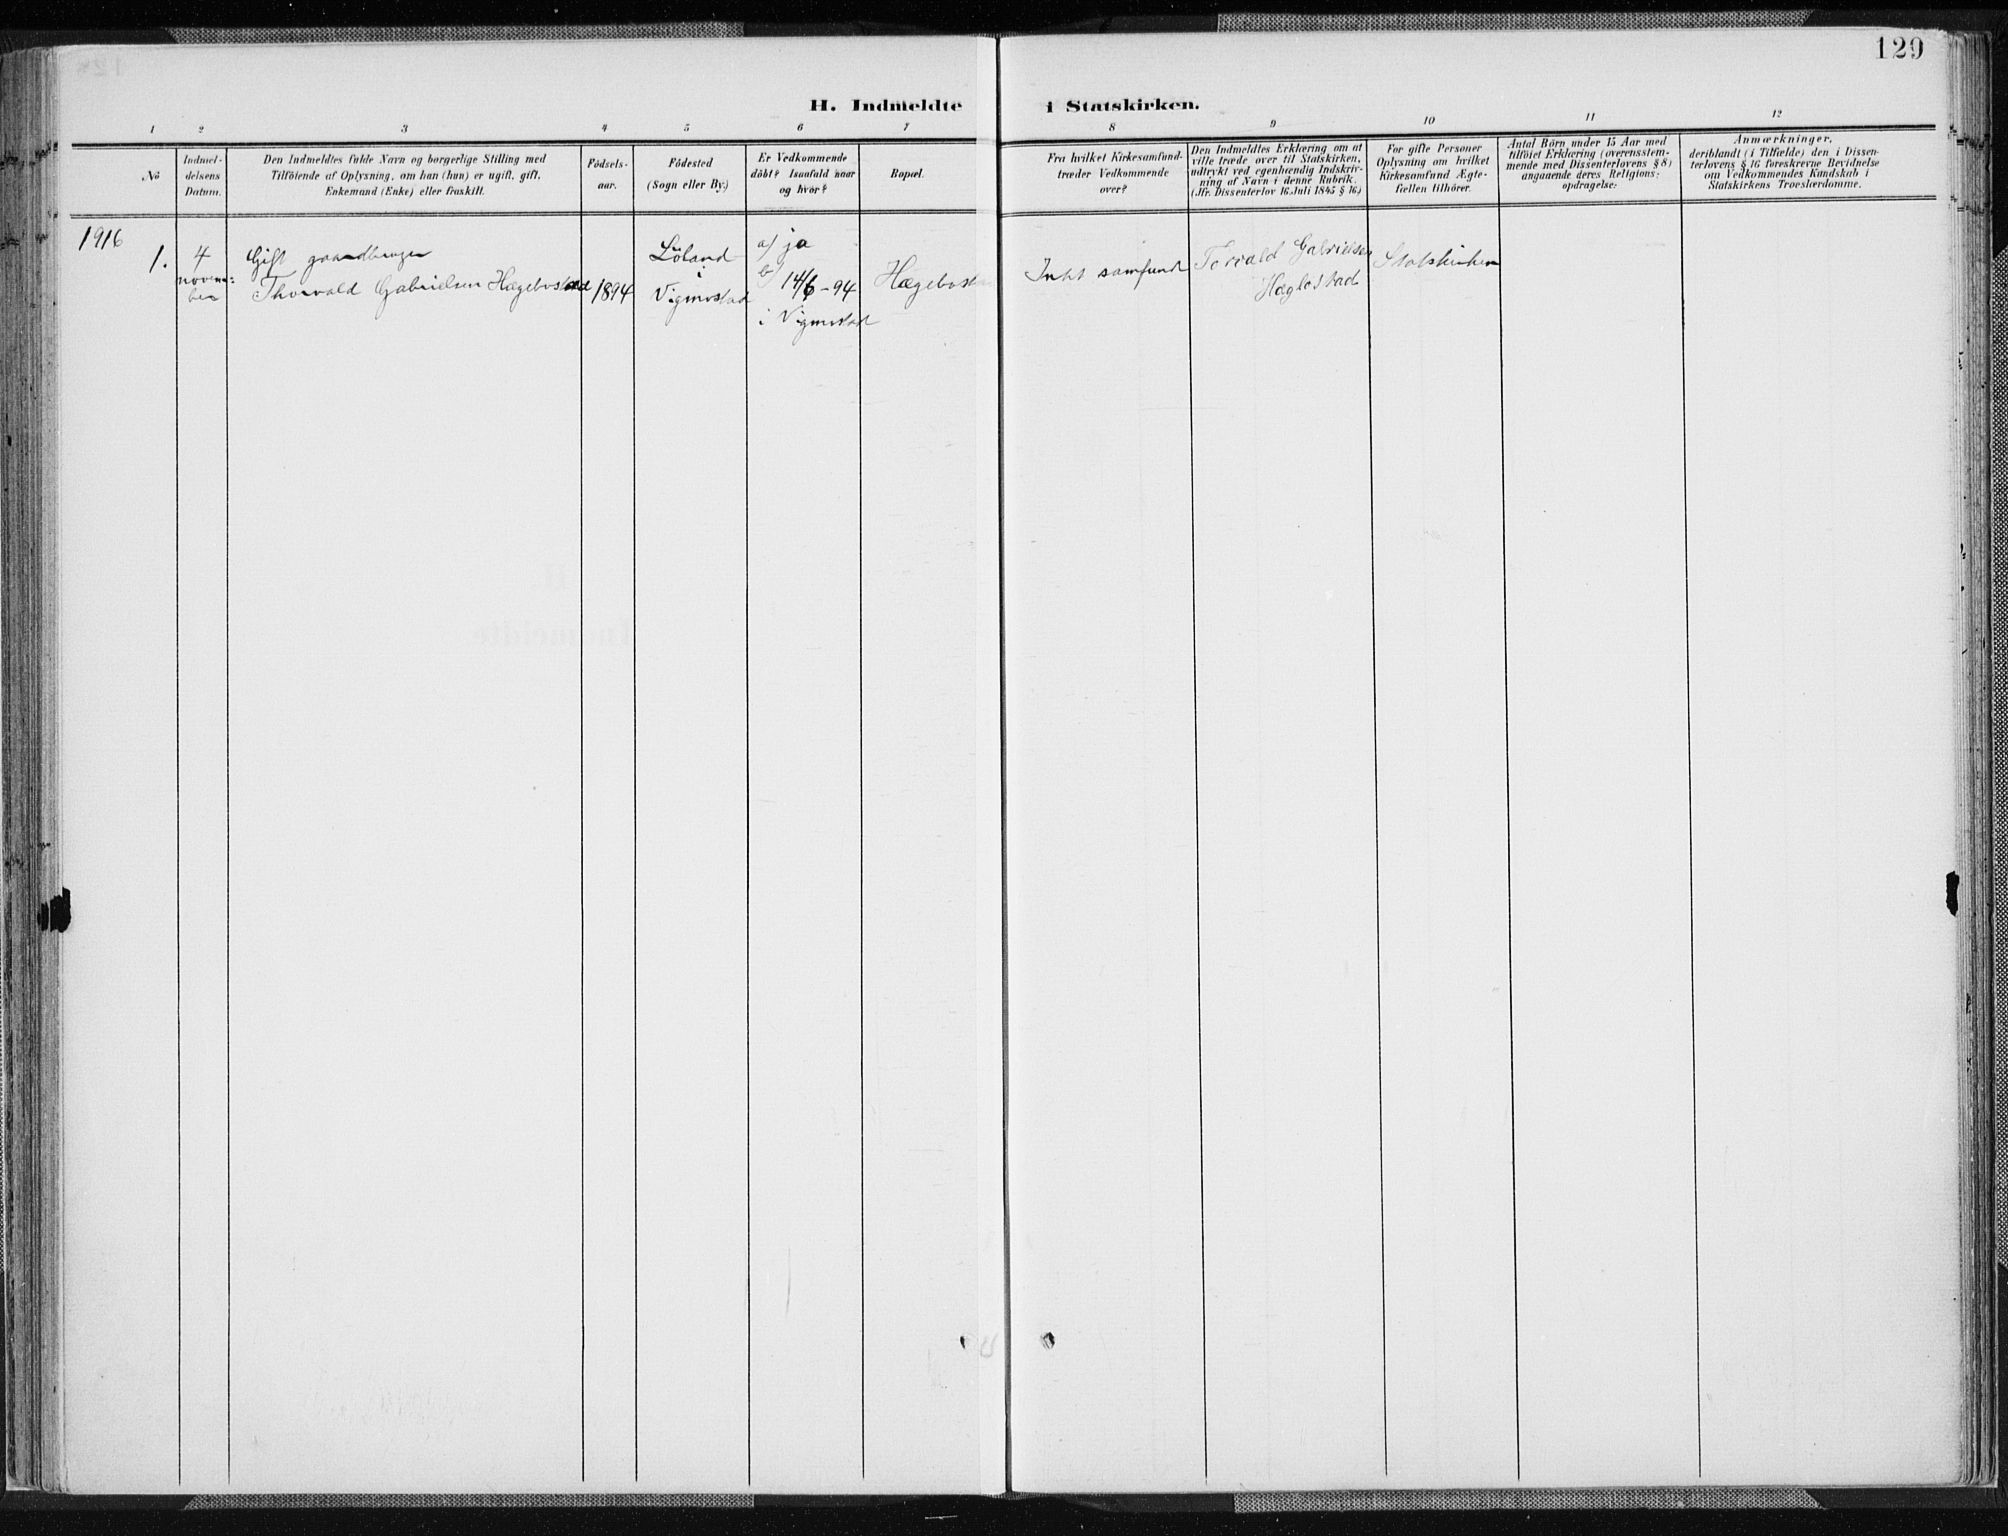 129
H. Indmeldte i Statskirken.
1 2 3 4 5 6 7 8 9 10 11 12
No
Indmel-
delsens
Datum.
Den Indmeldtes fulde Navn og borgerlige Stilling med
Tilföiende af Oplysning, om han (hun) er ugift, gift,
Enkemand (Enke) eller fraskilt.
Födsels-
aar.
Födested
(Sogn eller By.)
Er Vedkommende
döbt? Isaafald naar
og hvor?
Bopæl.
Fra hvilket Kirkesamfund
træder Vedkommende
over?
Den Indmeldtes Erklæring om at
ville træde over til Statskirken,
udtrykt ved egenhændig Indskriv-
ning af Navn i denne Rubrik.
(Jfr. Dissenterlov 16 Juli 1845 § 16)
For gifte Personer
Oplysning om hvilket
Kirkesamfund Ægte-
fællen tilhörer.
Antal Börn under 15 Aar med
tilföiet Erklæring (overensstem-
mende med Dissenterlovens § 8)
angaaende deres Religions-
opdragelse:
Anmærkninger,
deriblandt (i Tilfælde) den i Dissen-
terlovens § 16 foreskrevne Bevidnelse
om Vedkommendes Kundskab i
Statskirkens Troeslærdomme.
1916
1.
4
novem-
ber
Gift gaardbruger
Thorvald Gabrielsen Hægebostad
1894
Löland
i
Vigmostad
a/ ja
b/ 14/6-94
i Vigmostad
Hægebostad
Intet samfund
Torvald Gabrielsen
Hæglostad
Statskirken